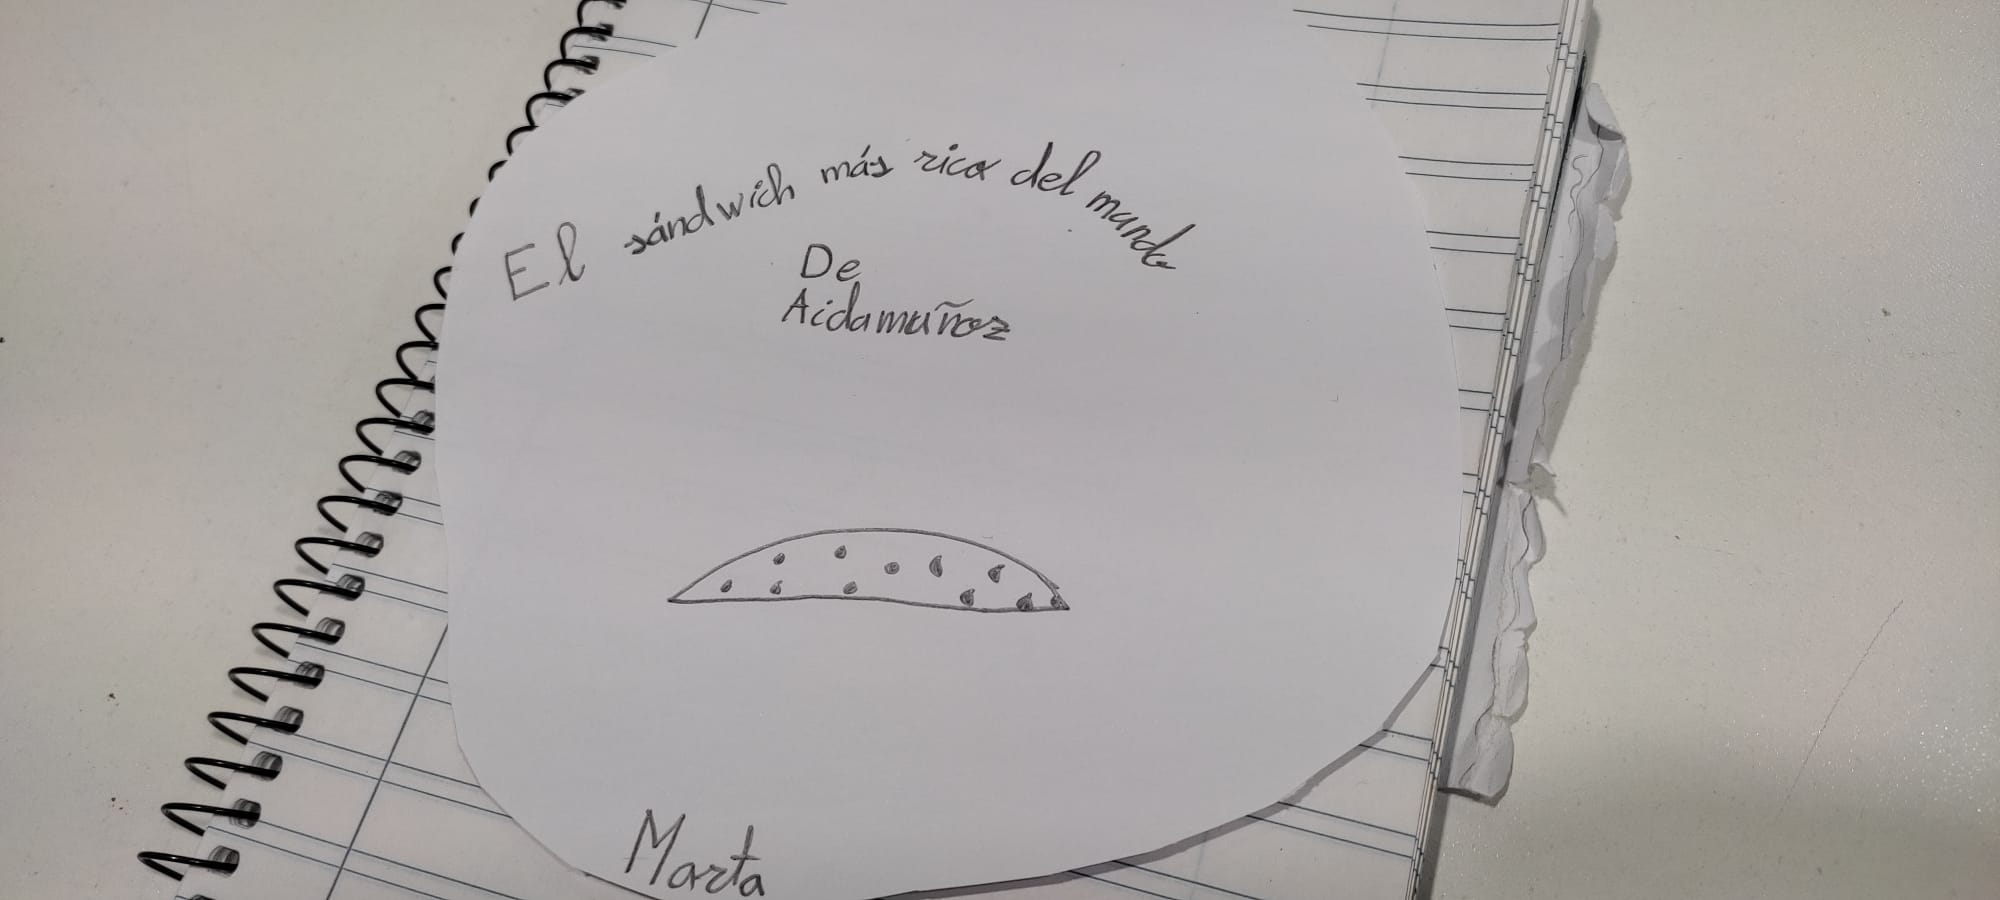 El sándwich más rico del mundo
De
Aidamuñoz
Marta